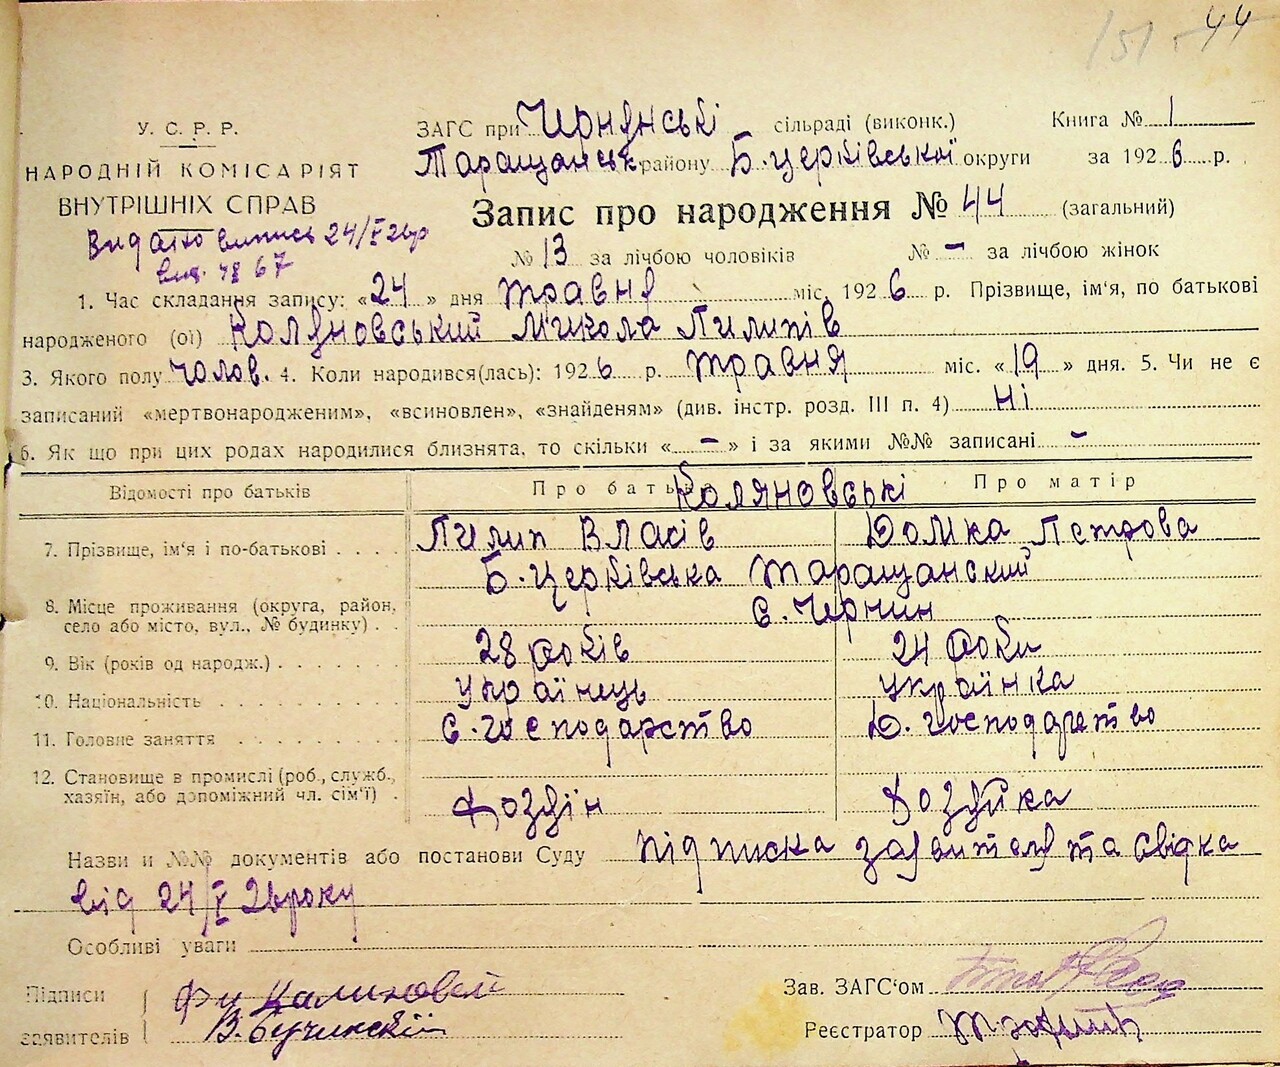 151 44
У. С. Р. Р.
НАРОДНІЙ КОМІСАРІЯТ
ВНУТРІШНІХ СПРАВ
Видано випись 24/V 26р
вид. № 67
ЗАГС при Чернянські сільраді (виконк.) Книга № 1
Таращанськ. району Б. Церківської округи за 1926 р.
Запис про народження № 44 (загальний)
№ 13 за лічбою чоловіків № – за лічбою жінок
1. Час складання запису: «24» дня травня міс. 1926 р. Прізвище, ім'я, по батькові
народженого (ої) Коляновський Микола Пилипів
3. Якого полу чолов. 4. Коли народився(лась): 1926 р. травня міс. «19» дня. 5. Чи не є
записаний «мертвонародженим», «всиновлен», «знайденям» (див. інстр. розд. III п. 4) Ні
6. Як що при цих родах народилися близнята, то скільки « – » і за якими №№ записані –
Відомості про батьків Про батька Про матір
Коляновські
7. Прізвище, ім'я і по-батькові Пилип Власів Домка Петрова
Б. Церківська Таращанский
8. Місце проживання (округа, район, село або місто, вул., № будинку) с. Чернин
9. Вік (років од народж.) 28 років 24 роки
10. Національність Українець Українка
11. Головне заняття С. господарство Д. господарство
12. Становище в промислі (роб., служб., хазяїн, або допоміжний чл. сім'ї) Хозяїн Хозяйка
Назви и №№ документів або постанови Суду підписка заявителя та свідка
від 24/V 26 року
Особливі уваги
Підписи заявителів
В. Бучинскій
Зав. ЗАГС'ом
Реєстратор